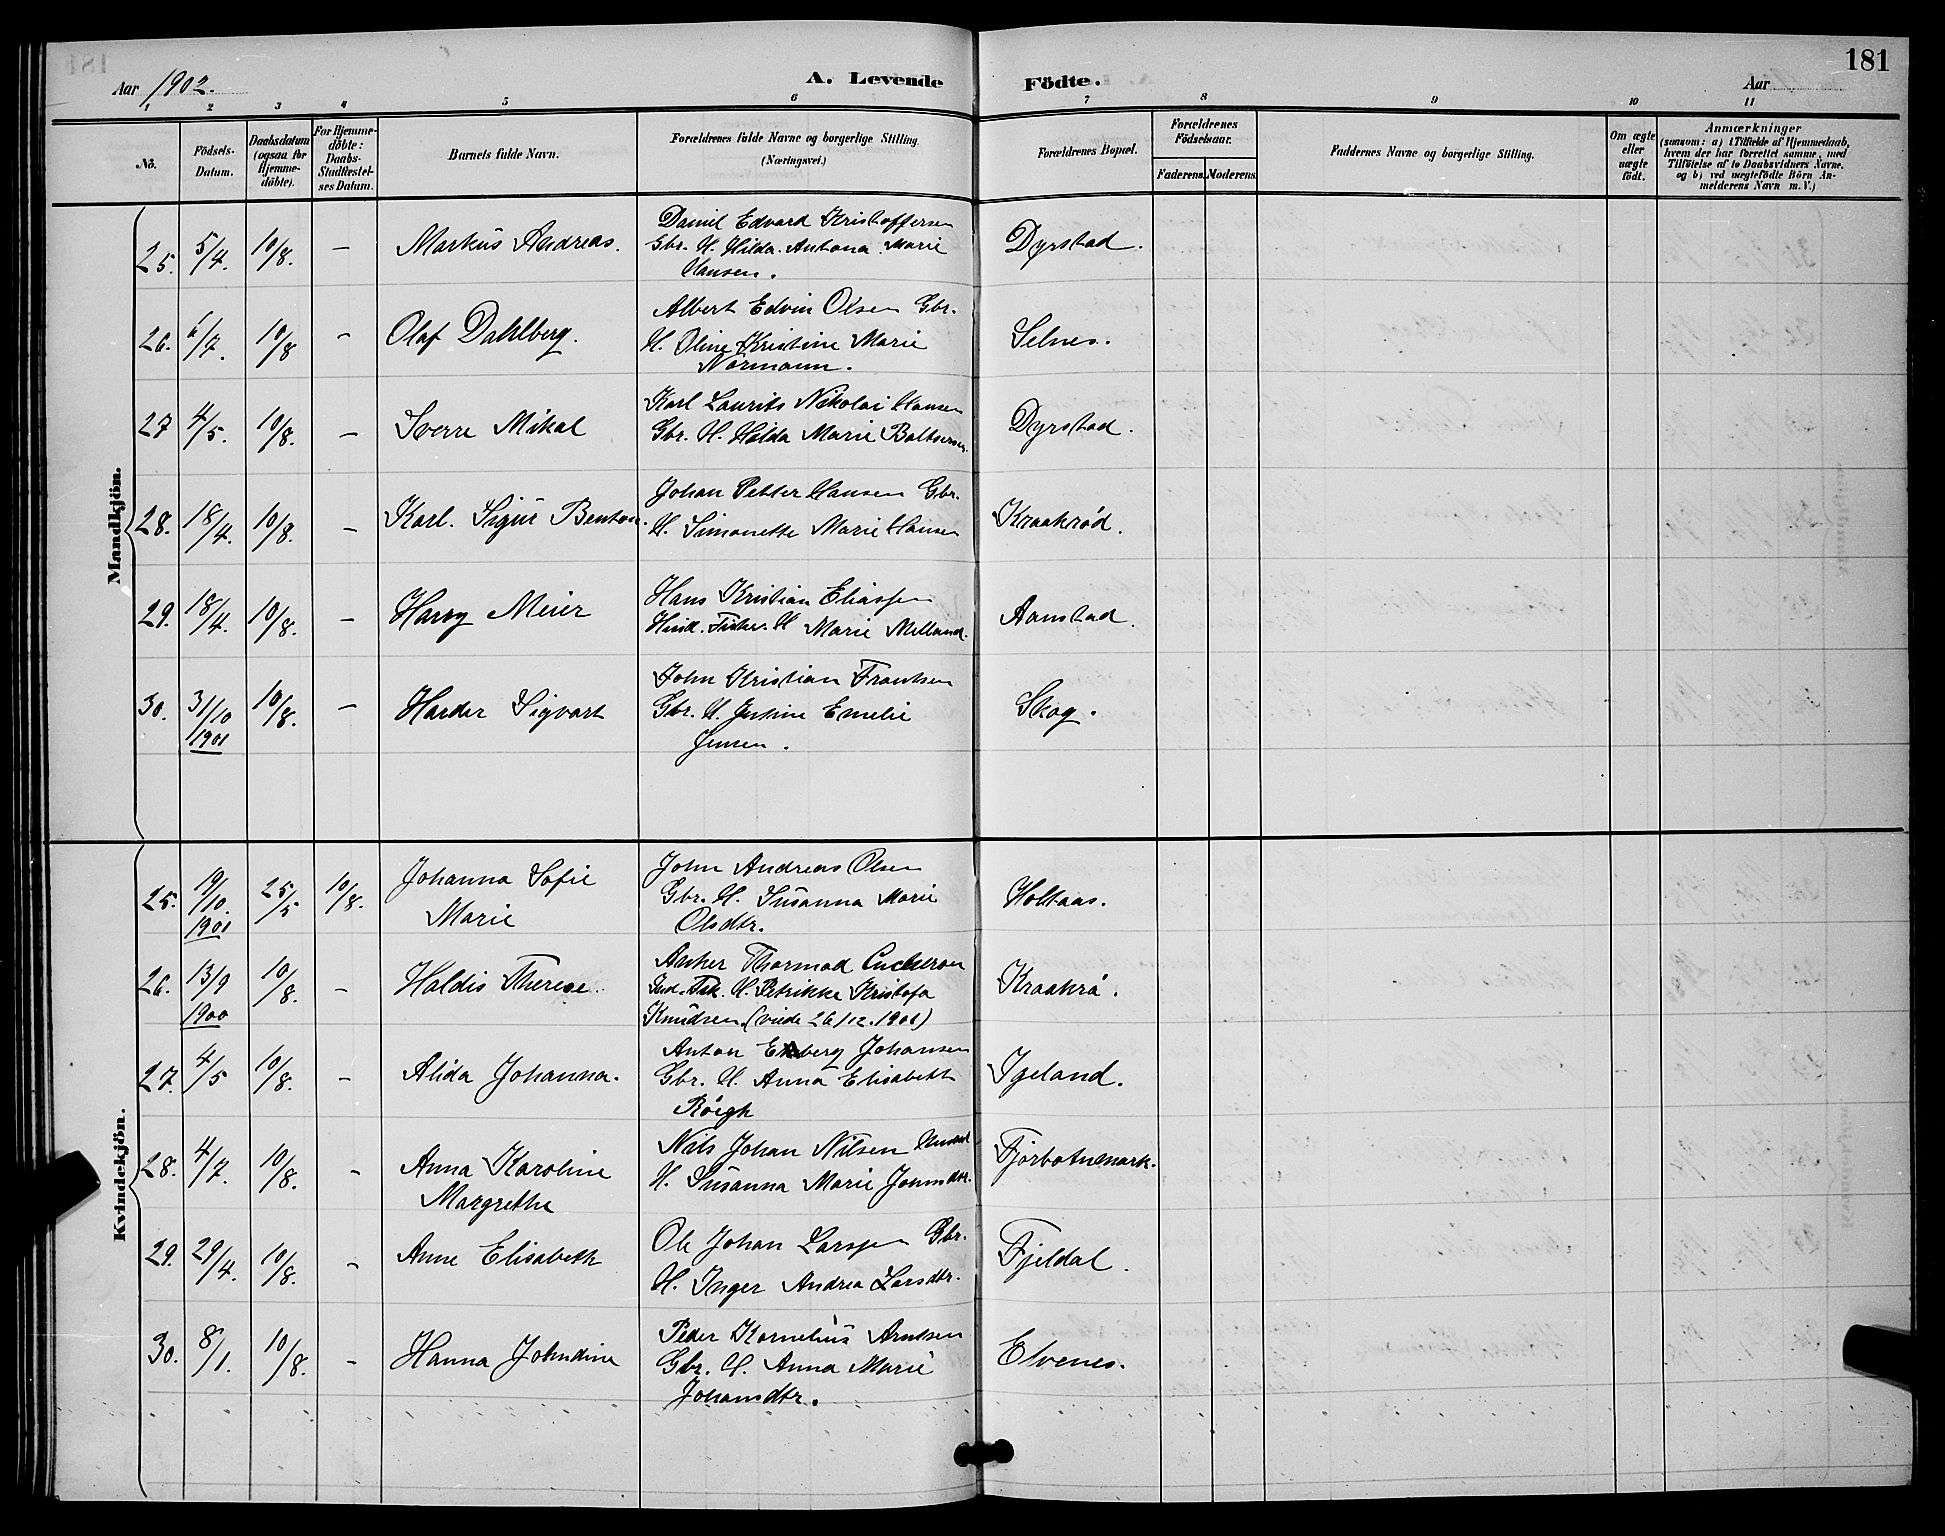 181
Aar 1902.
A. Levende Födte.
Aar
1 2 3 4 5 6 7 8 9 10 11
No.
Födsels-Datum.
Daabsdatum (ogsaa for Hjemmedöbte).
For Hjemmedöbte: Daabs-Stadfæstelses Datum.
Barnets fulde Navn.
Forældrenes fulde Navne og borgerlige Stilling.
(Næringsvei.)
Forældrenes Bopæl.
Forældrenes Födselsaar.
Faderens. Moderens.
Faddernes Navne og borgerlige Stilling.
Om ægte eller uægte födt.
Anmærkninger
(saasom: a) i Tilfælde af Hjemmedaab, hvem der har forrettet samme, med Tilföielse af to Daabsvidners Navne. og b) ved uægtefödte Börn Anmelderens Navn m. V.)
Mandkjön.
25. 5/4. 10/8. – Markus Andreas. Daniel Edvard Kristoffersen
Gbr. H. Hilda Antona Marie
Hansen. Dyrstad.
26. 6/7. 10/8 – Olaf Dahlberg. Albert Edvin Olsen Gbr.
H. Oline Kristine Marie
Normann. Selnes.
27 4/5. 10/8. – Sverre Mikal Karl Laurits Nikolai Hansen
Gbr. H. Hilda Marie Baltsersen. Dyrstad.
28. 18/4. 10/8. – Karl. Sigur Benton. Johan Petter Hansen Gbr.
H. Simonette Marie Hansen Kraakrød.
29. 18/4. 10/8. – Harry Meier Hans Kristian Eliassen
Fisker. H Marie Aanstad.
30. 31/10 1901 10/8. – Harder Sigvart John Kristian Frantsen
Gbr. H. Justine Emelie
Jensen. Skog.
Kvindekjön.
25. 19/10. 1901 25/5 10/8. Johanna Sofie
Marie John Andreas Olsen
Gbr. H. Susanna Marie
Olsdtr. Holtaas.
26. 13/9 1900 10/8. – Haldis Therese. Anker Thormod
Ind. Fsk. H. Petrikke Kristofa
Knudsen (viede 26/12. 1901) Kraakrø.
27. 4/5 10/8. – Alida Johanna. Anton Enberg Johansen
Gbr. H. Anna Elisabeth
Røigh Igeland.
28. 4/7. 10/8. – Anna Karoline
Margrethe Nils Johan Nilsen
H. Susanna Marie Jonsdtr. Fjorbotnemark.
29. 29/4. 10/8. – Anne Elisabeth Ole Johan Larssen Gbr.
H. Inger Andrea Larsdtr. Fjeldal.
30. 8/1. 10/8. – Hanna Johndine Peder Kornelius Arntsen
Gbr. H. Anna Marie
Johansdtr. Elvenes.